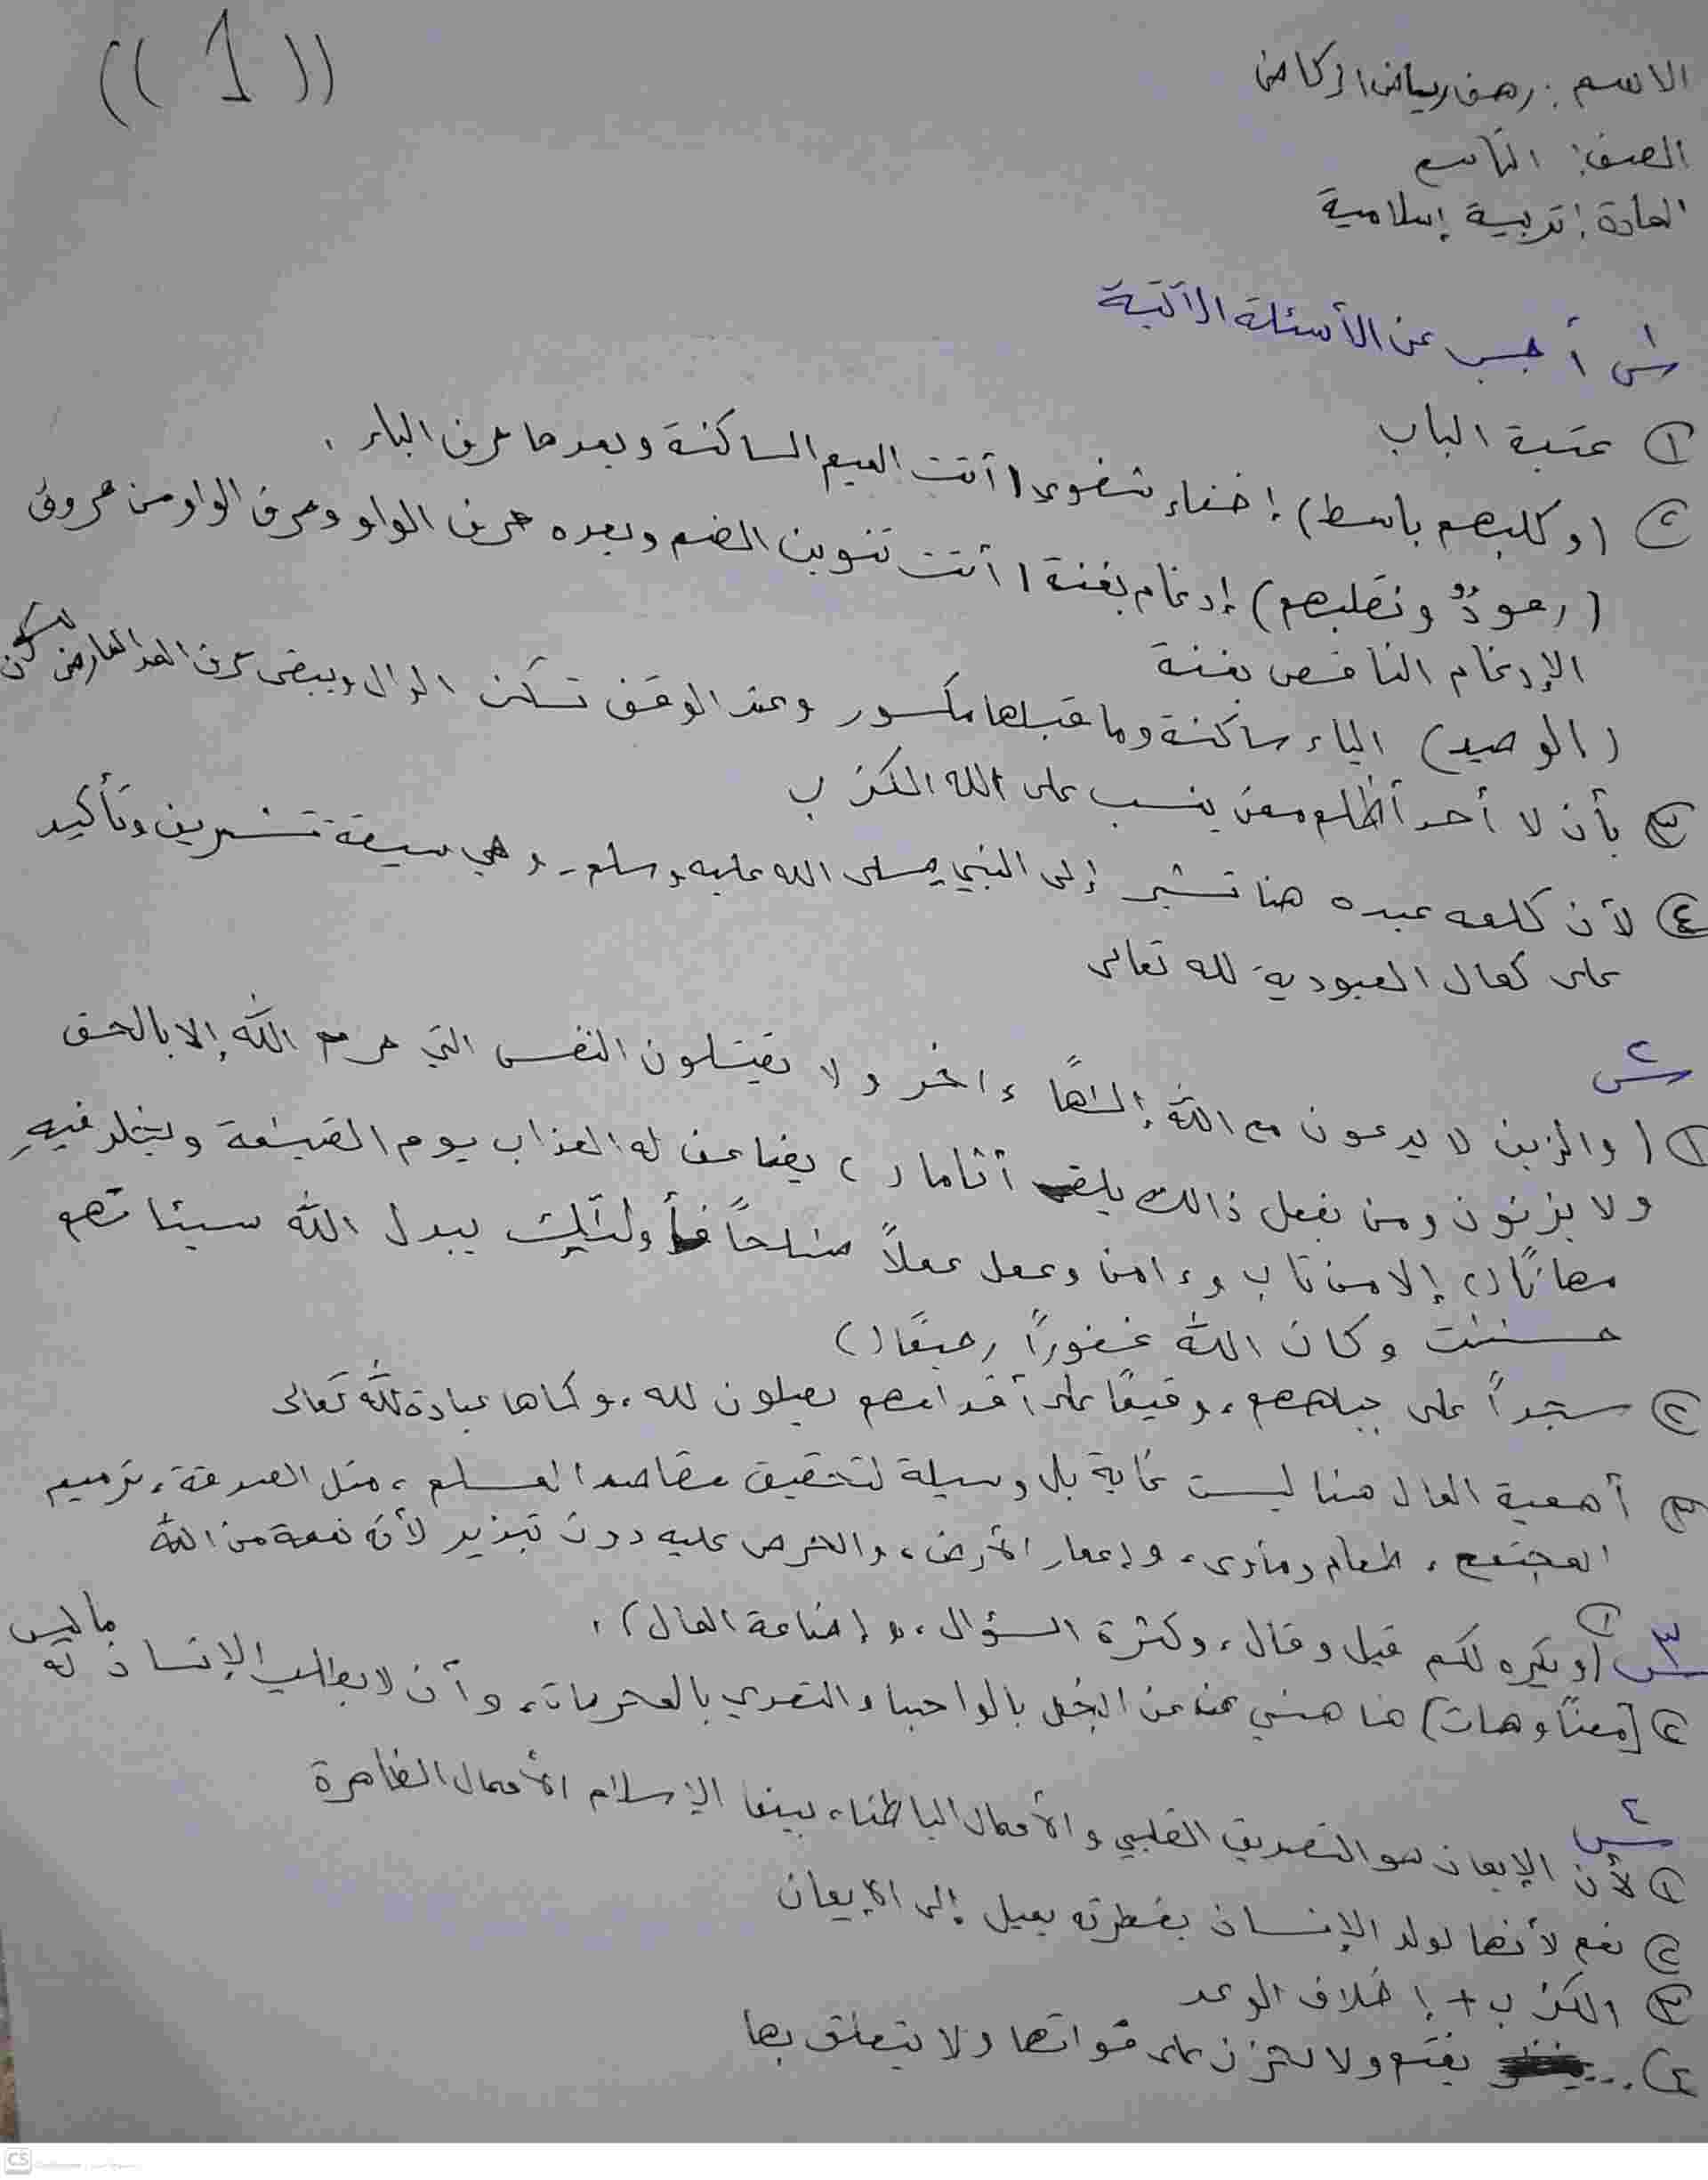 ((1))
الاسم: رهف رياض الركاض
الصف: التاسع
المادة: تربية إسلامية
س١ أجب عن الأسئلة الآتية
① عتبة الباب
② (وكلبهم باسط) إخفاء شفوي، أتت الميم الساكنة وبعدها حرف الباء.
(رعودٌ ونقلبهم) إدغام بغنة، أتت تنوين الضم وبعده حرف الواو وحرف الواو من حروف
الإدغام الناقص بغنة
(الوصيد) الياء ساكنة وما قبلها مكسور وعند الوقف تسكن الدال ويبقى حرف المد العارض
③ بأن لا أحد أظلم ممن ينسب على الله الكذب
④ لأن كلمه عبده هنا تشير إلى النبي صلى الله عليه وسلم - وهي سيقة تشريف وتأكيد
على كمال العبودية لله تعالى
س٢
① (والذين لا يدعون مع الله إلٰهًا ءاخر ولا يقتلون النفس التي حرم الله إلا بالحق
ولا يزنون ومن يفعل ذالك يلق أثاما () يضاعف له العذاب يوم القيٰمة ويخلد فيهِ
مهانًا () إلا من تاب وءامن وعمل عملاً صٰلحاً فأولئك يبدل الله سيئاتهم
حسنٰت وكان الله غفوراً رحيمًا ()
② سجداً على جباههم، وقيمًا على أقدامهم يصلون لله، وكلها عبادة لله تعالى
③ أهمية المال هنا ليست غاية بل وسيلة لتحقيق مقاصد المسلم، مثل الصدقة، ترميم
المجتمع، طعام ومأوى، وإعمار الأرض، والحرص عليه دون تبذير لأن نعمة من الله
س٣ ① (ويكره لكم قيل وقال، وكثرة السؤال، وإضاعة المال).
② [منعًا وهات) هنا عن البخل بالواجبا والتعدي بالمحرمات، وأن لا يطلب الإنسان ما ليس له
س٤
① لأن الإيمان هو التصديق القلبي والأعمال الباطنا، بينما الإسلام الأعمال الظاهرة
② نعم لأنها لولد الإنسان بفطرته يميل إلى الإيمان
③ الكذب + إخلاف الوعد
④... يفتم ولا يحزن على فواتها ولا يتعلق بها
CS